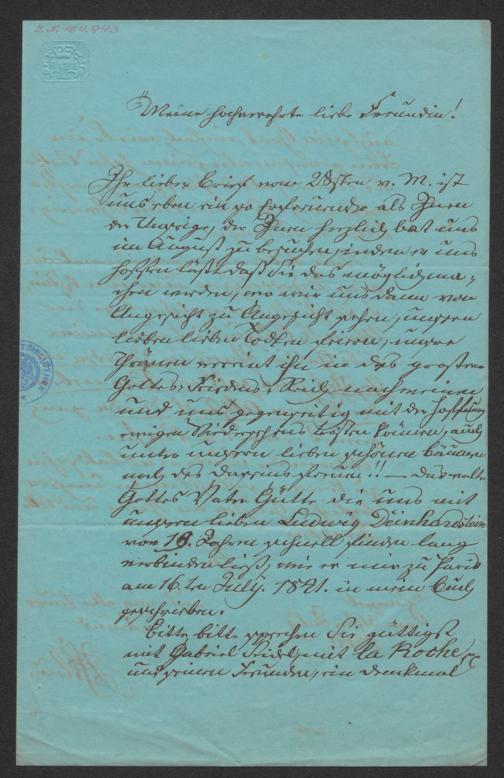 J. N. 104.943
Meine hochverehrte liebe Freundin!
Ihr lieber Brief vom 28sten v. M. ist
uns eben ein so erfreuender als Ihnen
der Unsrige, der Ihnen herzlich bat uns
im August zu besuchen, indem er uns
hoffen läßt daß Sie das möglich ma-
chen werden, wo wir uns dann von
Angesicht zu Angesicht sehen, unsern
lieben lieben Todten feiern, unsre
Thränen vereint ihn in des großen
Gottes, Friedens-Reich nachweinen
und uns gegenseitig mit der Hoffnung
ewigen Wiedersehens trösten können, auch
unter unsern lieben schönen Bäumen
noch des Daseins freuen!! — Das walte
Gottes Vater Güte die uns mit
unserm lieben Ludwig Deinhardstein
vor 18 Jahren schnell finden lang
verbinden ließ, wie er mir zu Paris
am 16.ten July. 1841. in mein Buch
geschrieben.
Bitte bitte sprechen Sie gütigst
mit Gabriel Seidl, mit la Roche
und seinen Freunden, ein Denkmal